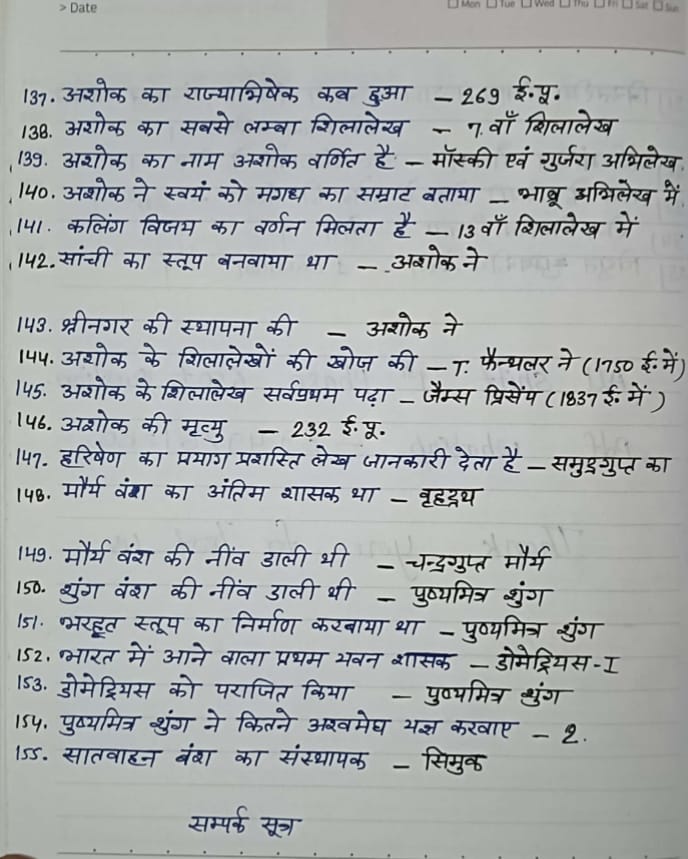 > Date
Mon Tue Wed Thu Fri Sat Sun
137. अशोक का राज्याभिषेक कब हुआ – 269 ई.पू.
138. अशोक का सबसे लम्बा शिलालेख – 7. वाँ शिलालेख
139. अशोक का नाम अशोक वर्णित है – मॉस्की एवं गुर्जरा अभिलेख
140. अशोक ने स्वयं को मगध का सम्राट बताया – भाब्रू अभिलेख में
141. कलिंग विजय का वर्णन मिलता है – 13 वाँ शिलालेख में
142. सांची का स्तूप बनवाया था – अशोक ने
143. श्रीनगर की स्थापना की – अशोक ने
144. अशोक के शिलालेखों की खोज की – T. फैन्थलर ने (1750 ई. में)
145. अशोक के शिलालेख सर्वप्रथम पढ़ा – जैम्स प्रिसेंप (1837 ई. में)
146. अशोक की मृत्यु – 232 ई.पू.
147. हरिषेण का प्रयाग प्रशस्ति लेख जानकारी देता है – समुद्रगुप्त का
148. मौर्य वंश का अंतिम शासक था – वृहद्रथ
149. मौर्य वंश की नींव डाली थी – चन्द्रगुप्त मौर्य
150. शुंग वंश की नींव डाली थी – पुष्यमित्र शुंग
151. भरहूत स्तूप का निर्माण करबाया था – पुष्यमित्र शुंग
152. भारत में आने वाला प्रथम यवन शासक – डोमेट्रियस-I
153. डोमेट्रियस को पराजित किया – पुष्यमित्र शुंग
154. पुष्यमित्र शुंग ने कितने अश्वमेघ यज्ञ करवाए – 2.
155. सातवाहन बंश का संस्थापक – सिमुक
सम्पर्क सूत्र